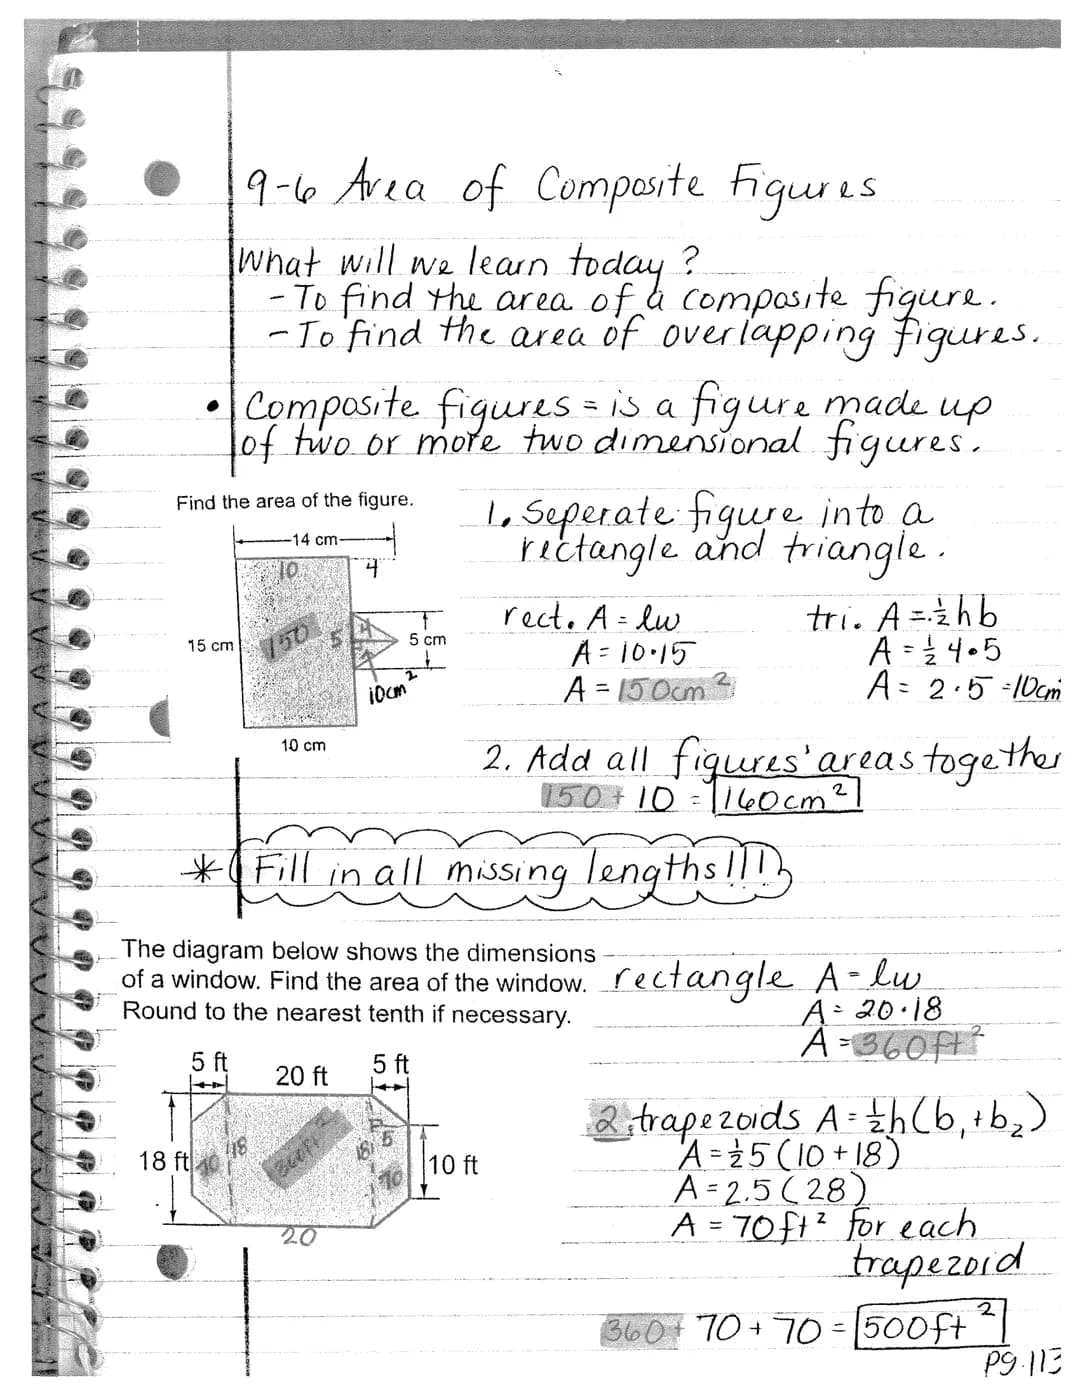 9-6 Area of Composite Figures
What will we learn today?
- To find the area of a composite figure.
- To find the area of overlapping figures.
• Composite figures = is a figure made up
of two or more two dimensional figures.
Find the area of the figure.
14 cm
10
4
15 cm
150
5
4
5 cm
10cm²
10 cm
1. Seperate figure into a
rectangle and triangle.
rect. A = lw
A = 10·15
A = 150cm²
tri. A = ½hb
A = ½ 4·5
A = 2·5 = 10cm
2. Add all figures' areas together
150 + 10 = 160cm²
* Fill in all missing lengths!!!
The diagram below shows the dimensions
of a window. Find the area of the window.
Round to the nearest tenth if necessary.
5 ft
20 ft
5 ft
18 ft
10
18
360ft²
18
5
10
10 ft
20
rectangle A = lw
A = 20·18
A = 360ft²
2 trapezoids A = ½h(b₁+b₂)
A = ½5(10+18)
A = 2.5(28)
A = 70ft² for each
trapezoid
360 + 70 + 70 = 500ft²
pg. 113